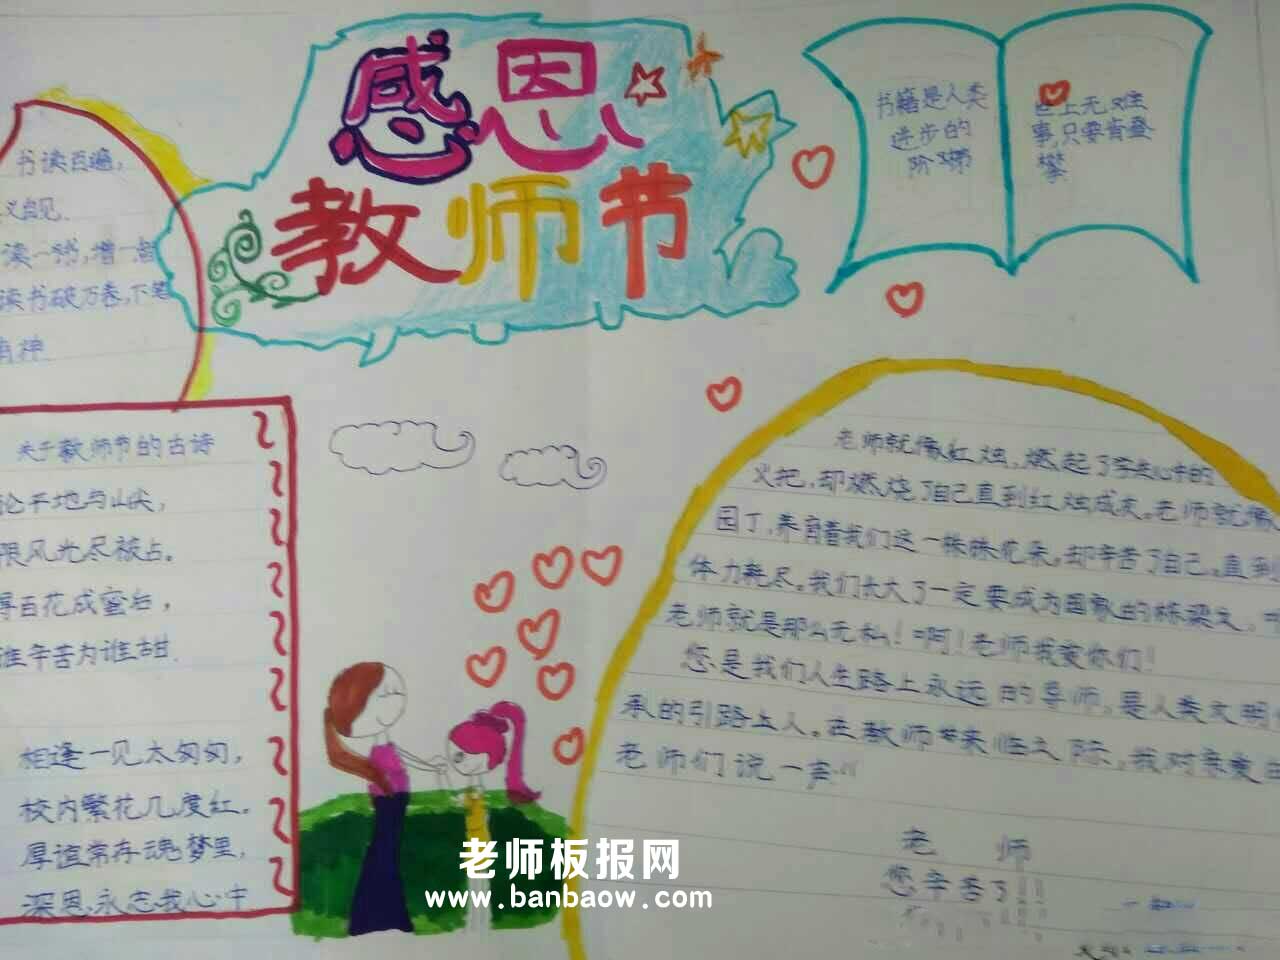 感恩
教师节
书籍是人类
进步的
阶梯
世上无难
事,只要肯登
攀
书读百遍,
义自见.
读一书,增一智
读书破万卷,下笔
有神
关于教师节的古诗
论平地与山尖,
限风光尽被占。
得百花成蜜后,
谁辛苦为谁甜.
相逢一见太匆匆,
校内繁花几度红。
厚谊常存魂梦里,
深恩永志我心中
老师就像红烛,燃起了学生心中的
火把,却燃烧了自己直到红烛成灰。老师就像
园丁,养育着我们这一株株花朵。却辛苦了自己。直到
体力耗尽。我们长大了一定要成为国家的栋梁
老师就是那么无私!啊!老师我爱你们!
您是我们人生路上永远的导师,是人类文明
承的引路上人。在教师节来临之际,我对亲爱
老师们说一声:
老 师
您辛苦了
老师板报网
www.banbaow.com